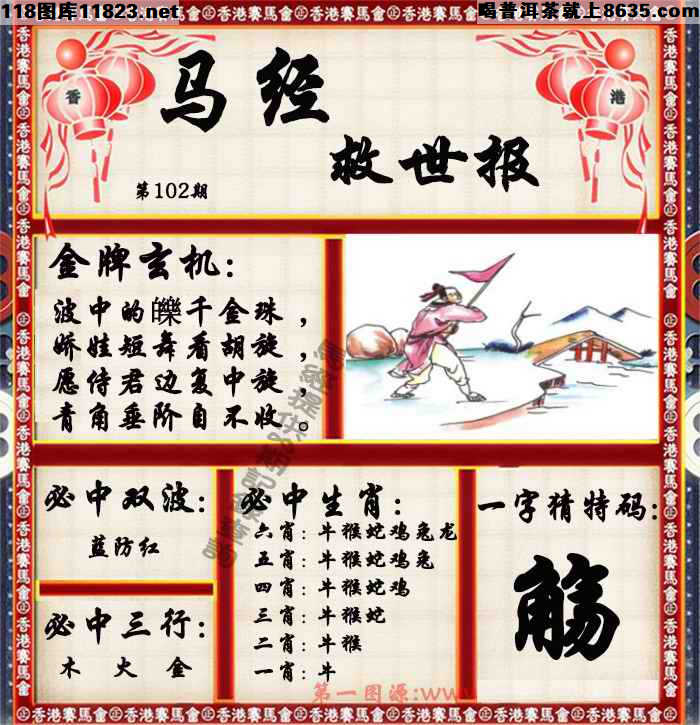 118图库11823.net
喝普洱茶就上8635.com
香
港
马经
救世报
第102期
金牌玄机:
波中的皪千金珠，
娇娃短舞看胡旋，
愿侍君边复中旋，
青角垂阶自不收。
必中双波:
蓝防红
必中三行:
木 火 金
必中生肖:
六肖: 牛猴蛇鸡兔龙
五肖: 牛猴蛇鸡兔
四肖: 牛猴蛇鸡
三肖: 牛猴蛇
二肖: 牛猴
一肖: 牛
一字猜特码:
觞
第一图源:www
香港賽馬會